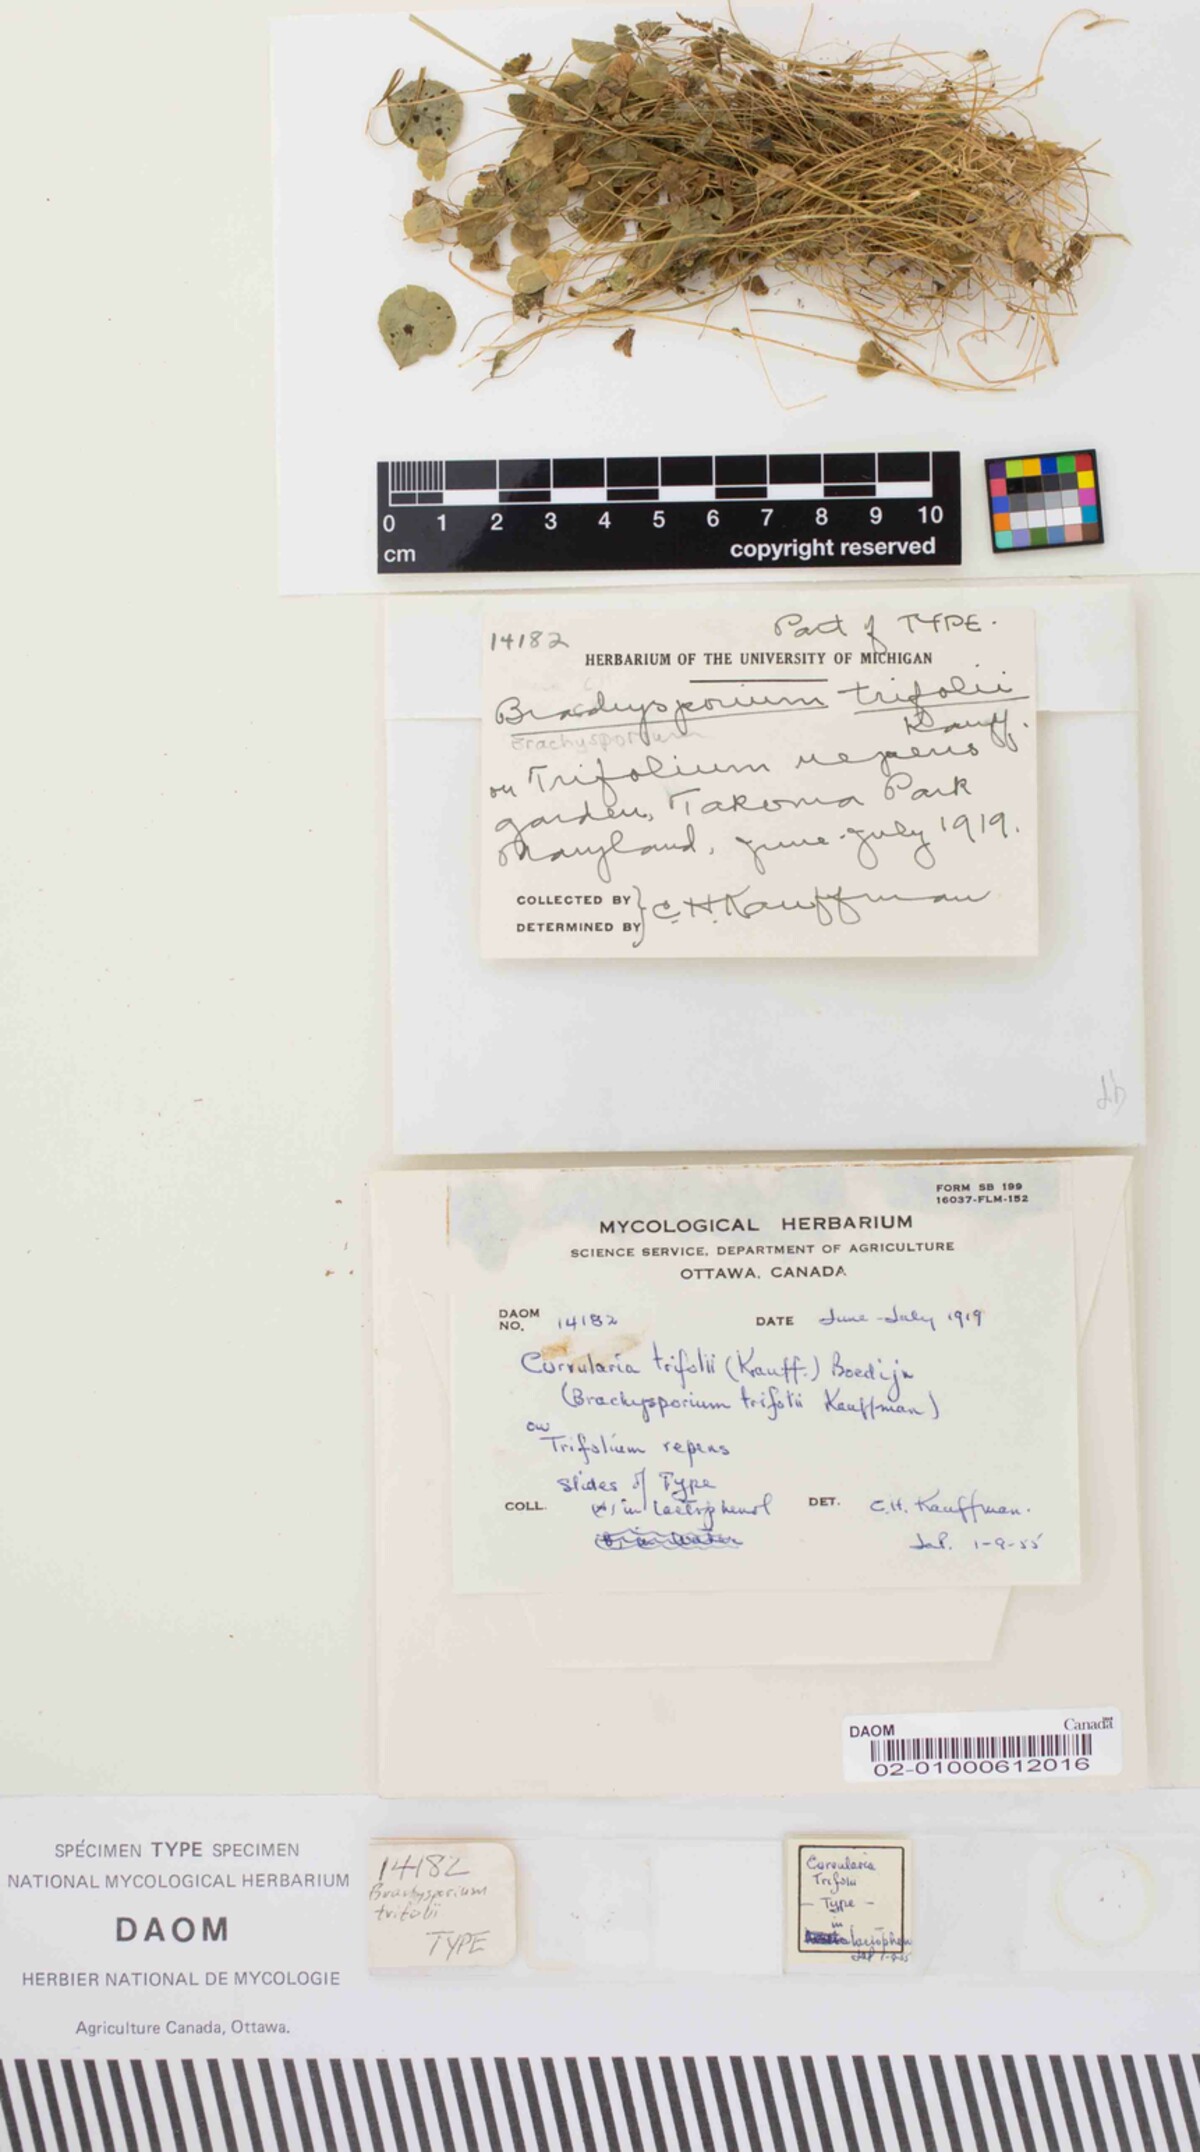 0 1 2 3 4 5 6 7 8 9 10
cm copyright reserved
14182 Part of TYPE.
HERBARIUM OF THE UNIVERSITY OF MICHIGAN
Brachysporium trifolii
Kauff.
Brachysporium
on Trifolium repens
garden, Takoma Park
Maryland, June-July 1919.
COLLECTED BY
DETERMINED BY } C.H. Kauffman
FORM SB 199
16037-FLM-152
MYCOLOGICAL HERBARIUM
SCIENCE SERVICE, DEPARTMENT OF AGRICULTURE
OTTAWA, CANADA
DAOM NO. 14182 DATE June-July 1919
Curvularia trifolii (Kauff.) Boedijn
(Brachysporium trifolii Kauffman)
on
Trifolium repens
Slides of Type
COLL. in lactophenol DET. C.H. Kauffman.
1-9-55
DAOM Canada
02-01000612016
SPÉCIMEN TYPE SPECIMEN
NATIONAL MYCOLOGICAL HERBARIUM
DAOM
HERBIER NATIONAL DE MYCOLOGIE
Agriculture Canada, Ottawa.
14182
Brachysporium
trifolii
TYPE
Curvularia
Trifolii
- Type -
in
lactophen
1-9-55